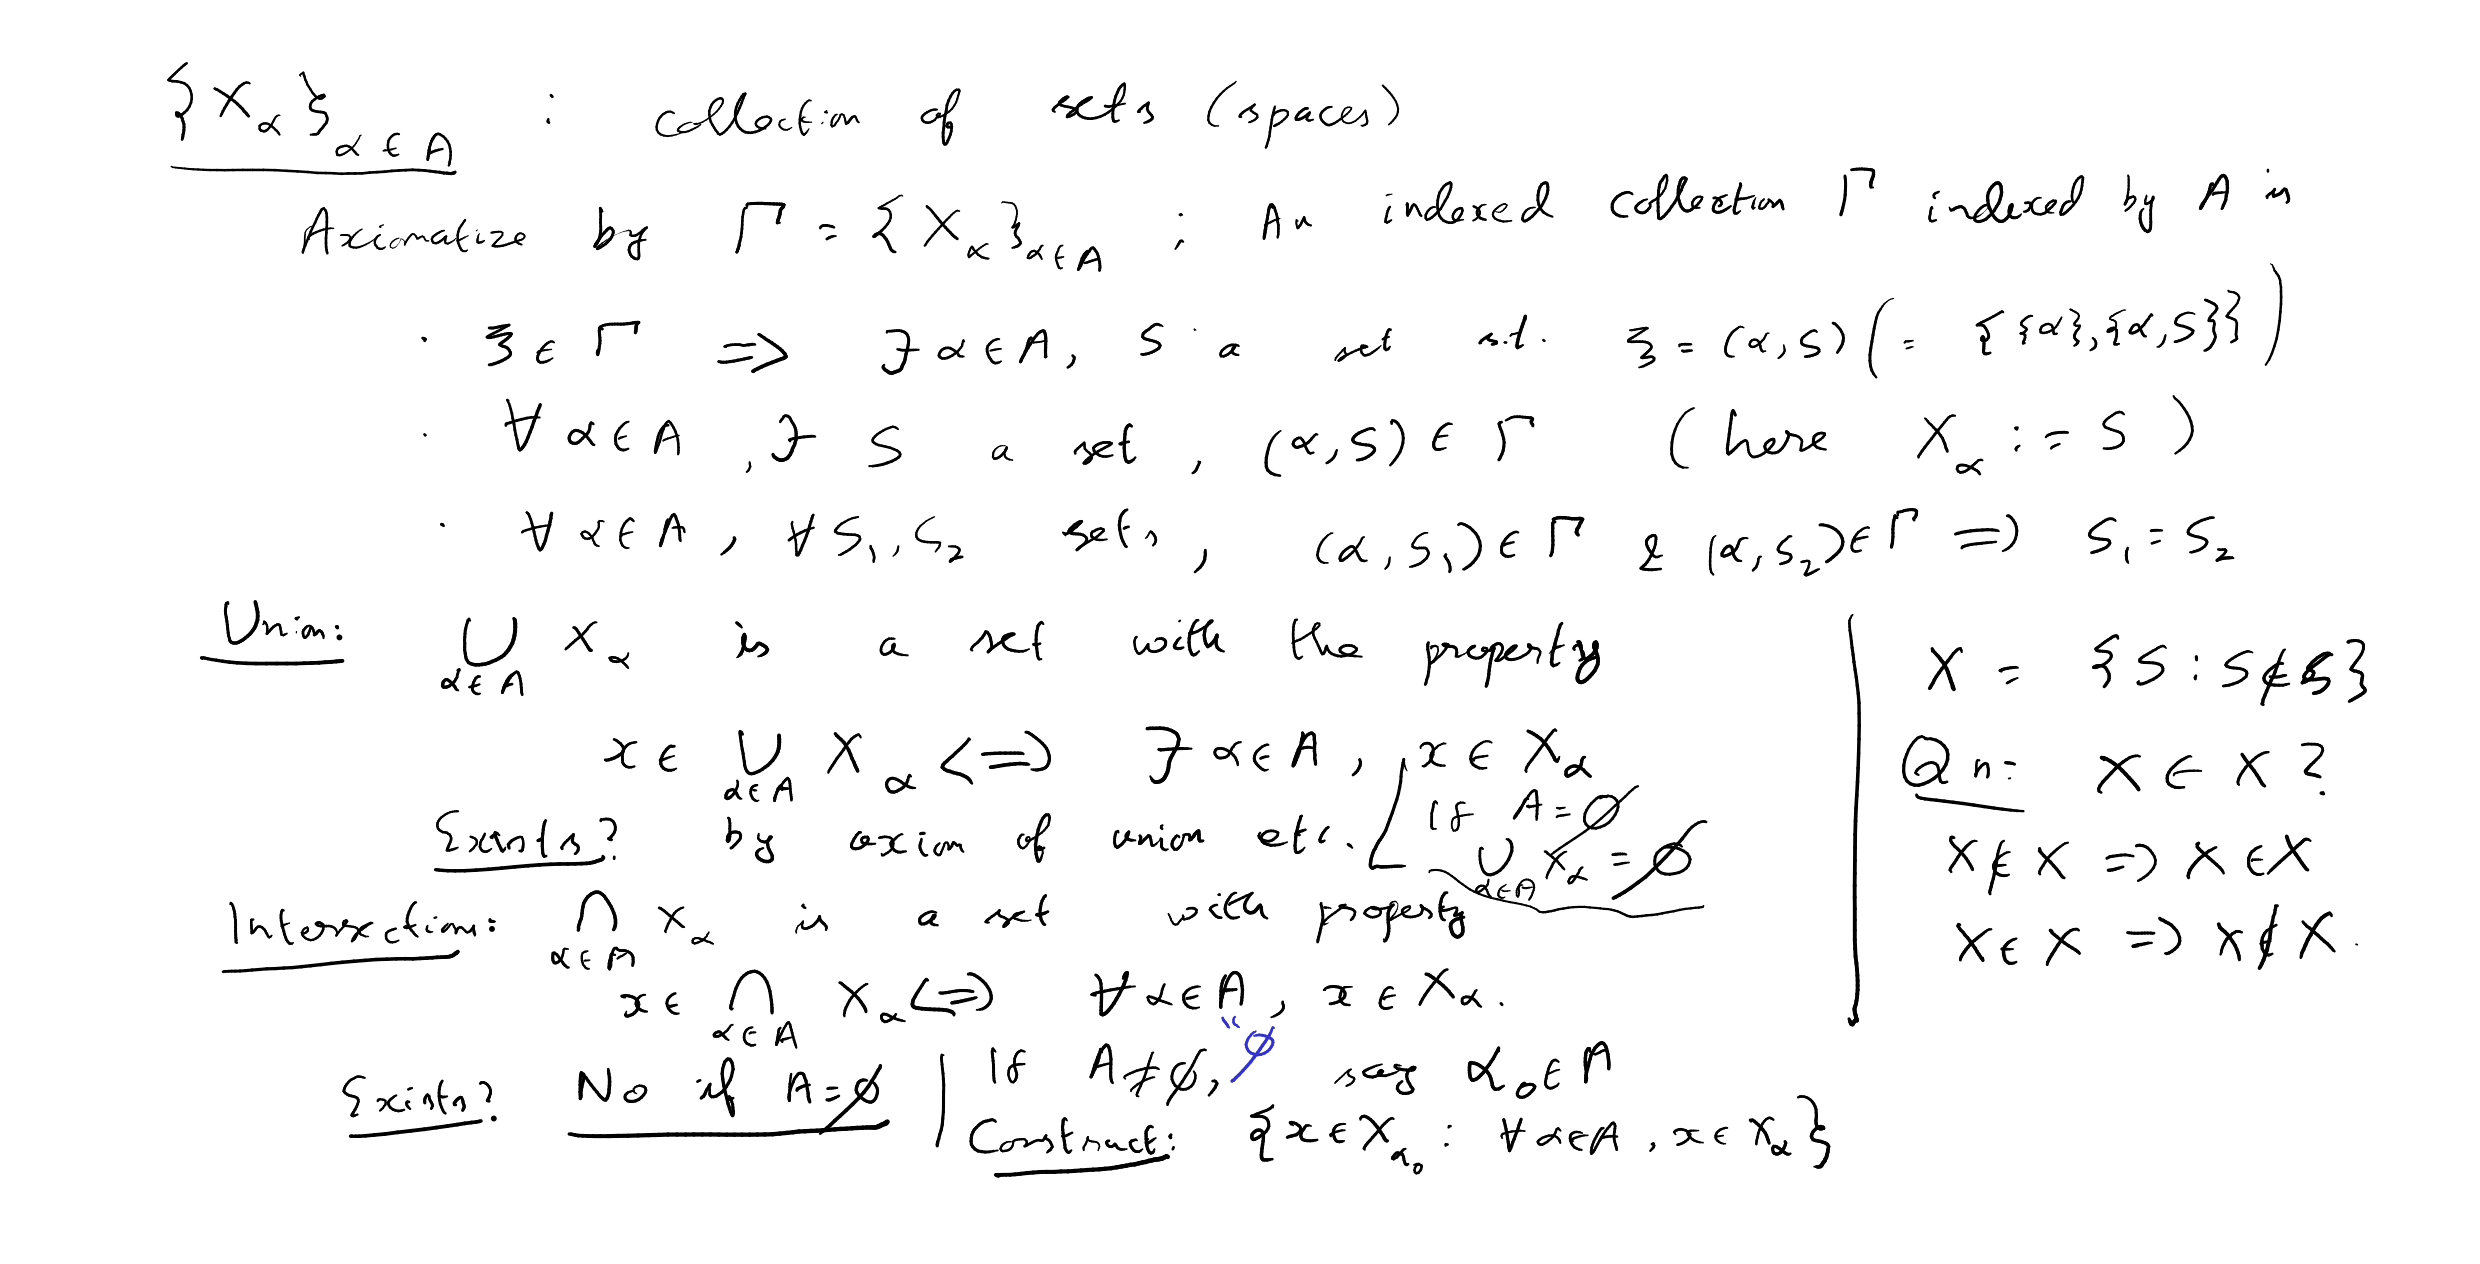 {X_α}_{α∈A} : collection of sets (spaces)
Axiomatize by Γ = {X_α}_{α∈A} ; An indexed collection Γ indexed by A is
· ξ ∈ Γ => ∃ α∈A, S a set s.t. ξ = (α,S) (= {{α},{α,S}})
· ∀ α∈A, ∃ S a set, (α,S) ∈ Γ (here X_α := S)
· ∀ α∈A, ∀ S₁, S₂ sets, (α,S₁)∈Γ & (α,S₂)∈Γ => S₁=S₂
Union: ⋃_{α∈A} X_α is a set with the property
x ∈ ⋃_{α∈A} X_α <=> ∃ α∈A, x ∈ X_α
Exists? by axiom of union etc.
If A=∅
⋃_{α∈A} X_α = ∅
Intersection: ⋂_{α∈A} X_α is a set with property
x ∈ ⋂_{α∈A} X_α <=> ∀ α∈A, x ∈ X_α.
" ∅
Exists? No if A=∅
If A≠∅, say α₀∈A
Construct: {x∈X_{α₀} : ∀ α∈A, x∈X_α}
X = {S : S∉S}
Qn: X ∈ X ?
X∉X => X∈X
X∈X => X∉X.